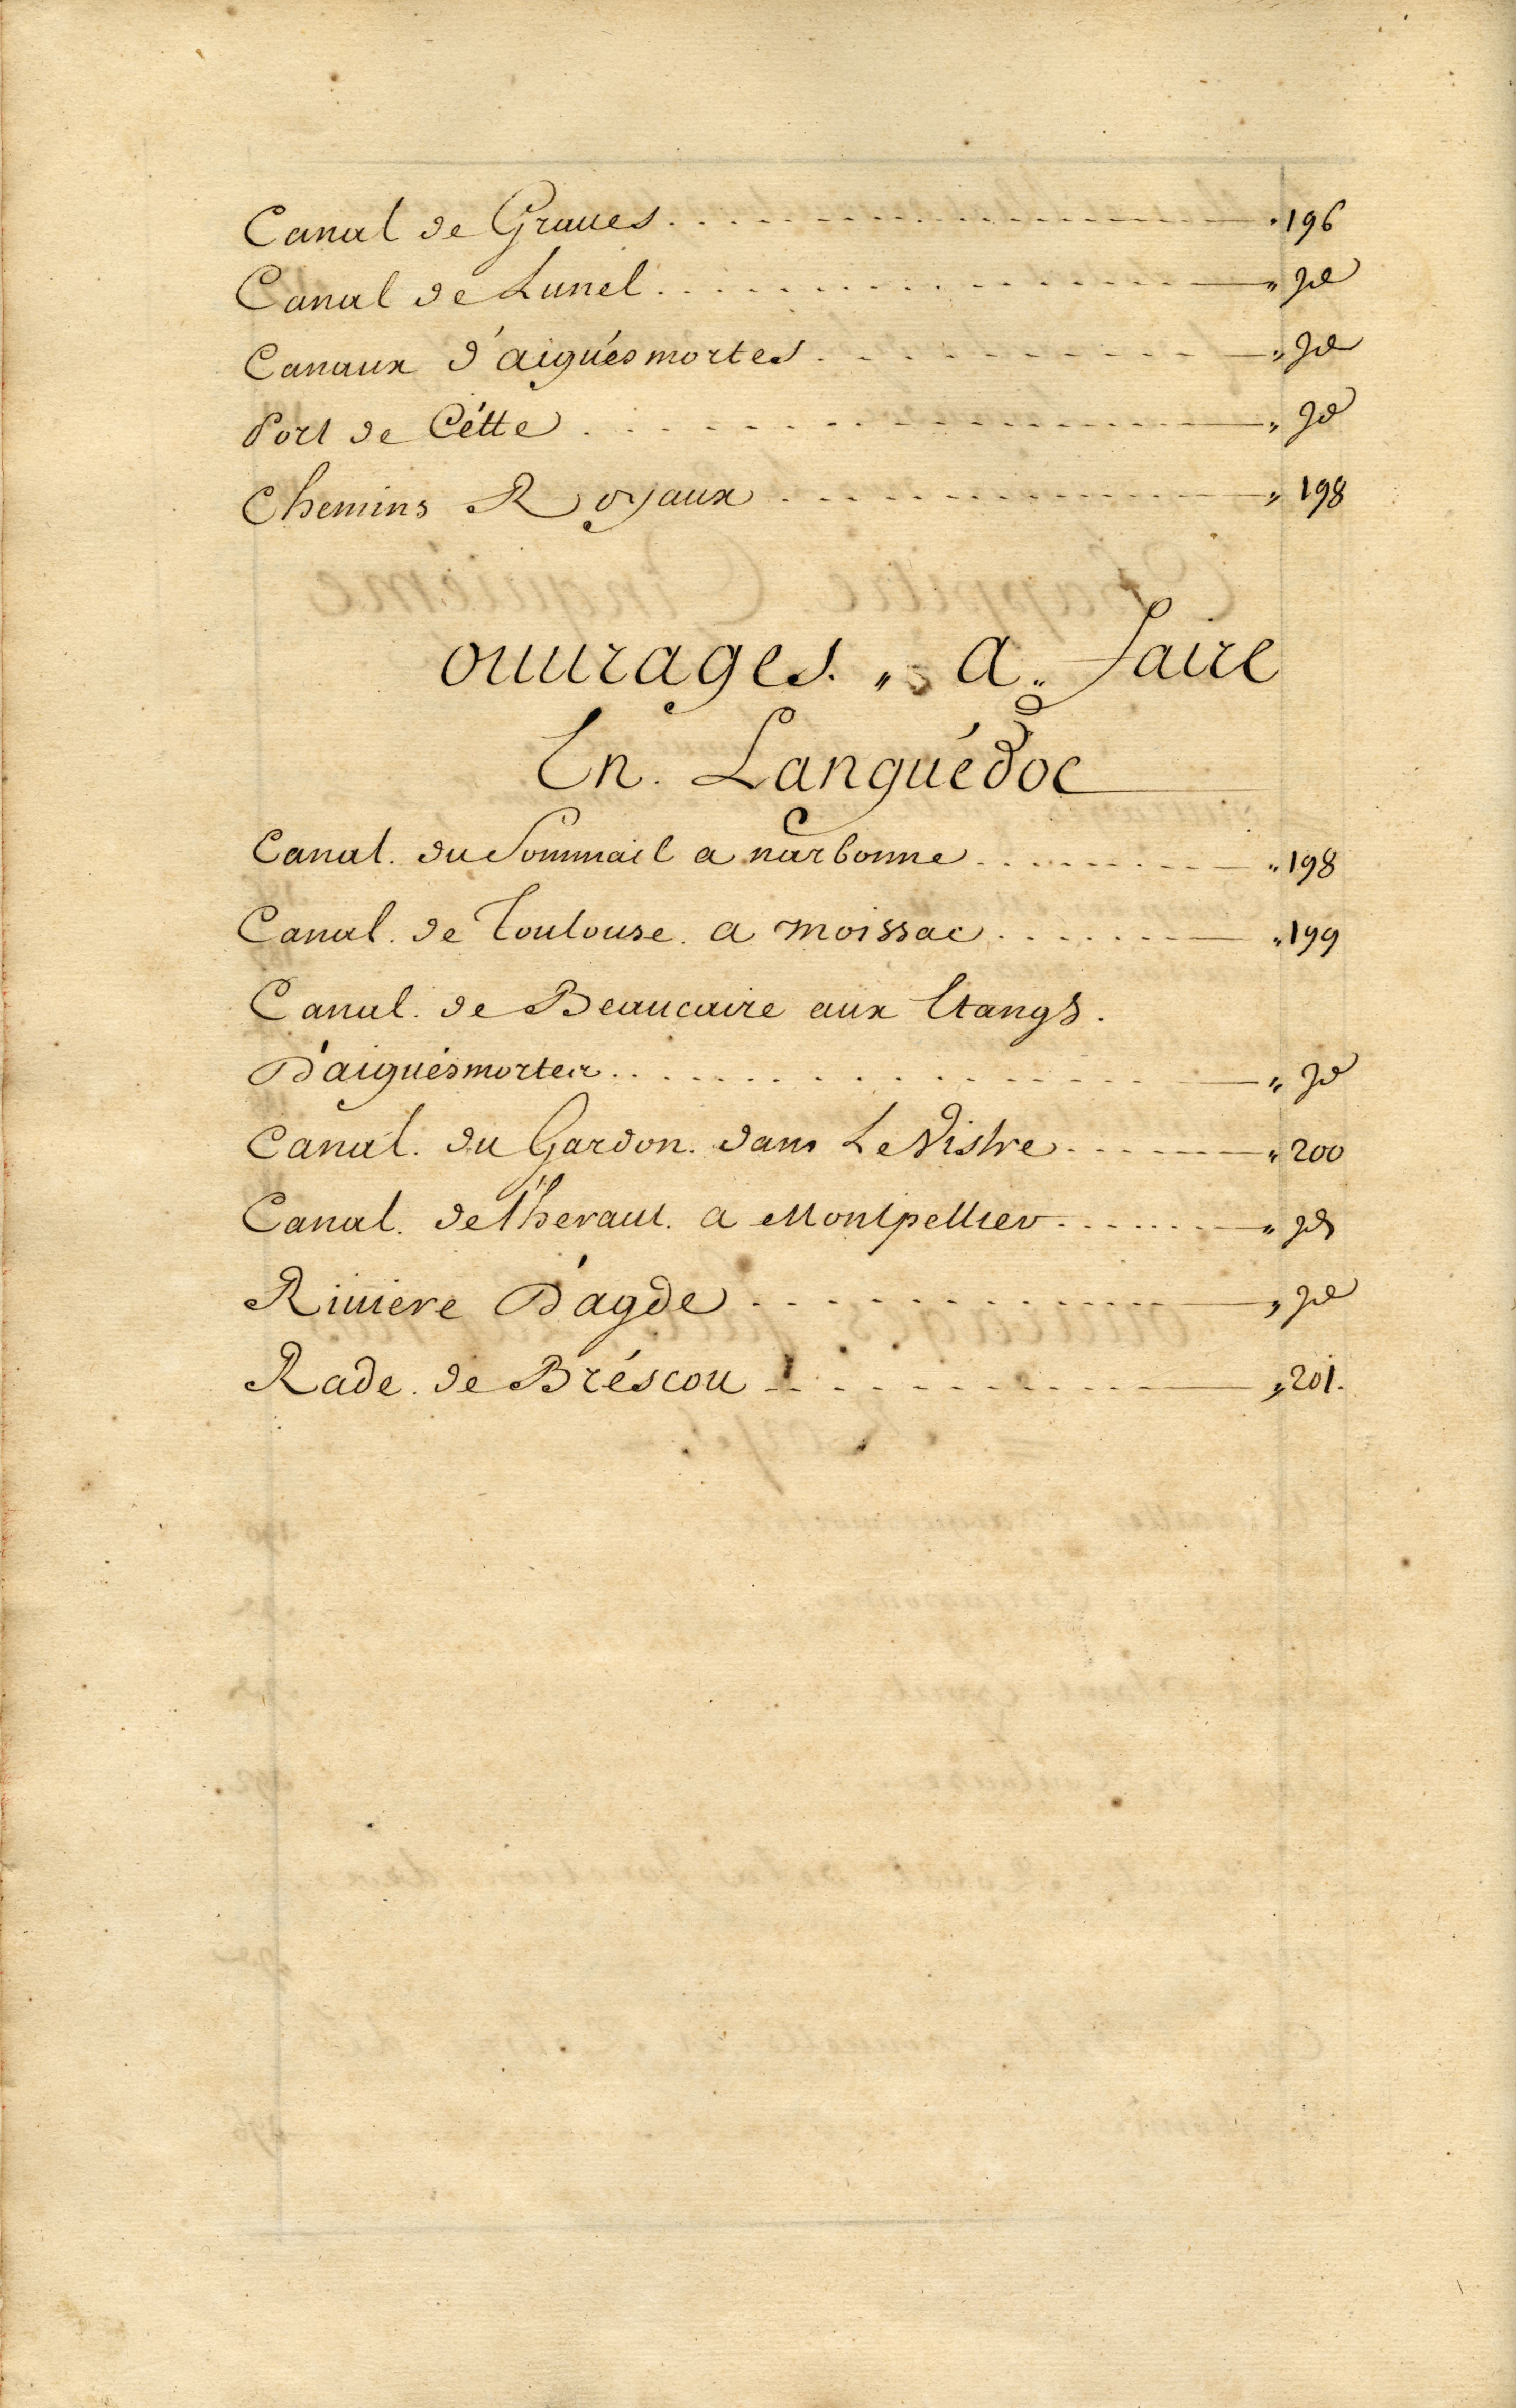 Canal de Graues. . . . . . . . . . . . 196
Canal de Lunel. . . . . . . . . . . . " Jd
Canaux d'aiguésmortes. . . . . . . . . " Jd
Port de Cétte . . . . . . . . . . . . " Jd
Chemins Royaux . . . . . . . . . . . " 198
ouurages. " a " faire
En. Languédoc
Canal. du Sommail a narbonne. . . . . . " 198
Canal. de Toulouse. a moissac. . . . . . " 199
Canal. de Beaucaire aux Etangs.
D'aiguésmortes. . . . . . . . . . . . " Jd
Canal. du Gardon. dans Le Vistre. . . . . " 200
Canal. de l'heraut. a Montpellier. . . . . " Jd
Riuiere D'agde . . . . . . . . . . . " Jd
Rade. de Bréscou . . . . . . . . . . " 201.